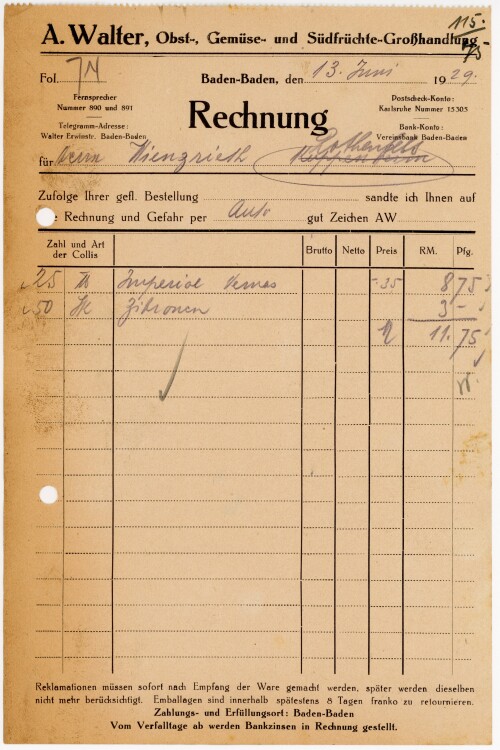 115.
A. Walter, Obst-, Gemüse- und Südfrüchte-Großhandlung
Fol. 74
Baden-Baden, den 13. Juni 1929.
Fernsprecher
Nummer 890 und 891
Telegramm-Adresse:
Walter Erwinstr. Baden-Baden
Rechnung
Postscheck-Konto:
Karlsruhe Nummer 15305
Bank-Konto:
Vereinsbank Baden-Baden
für Herrn Kienzrieth Rothenfels
Zufolge Ihrer gefl. Bestellung sandte ich Ihnen auf
Rechnung und Gefahr per Auto gut Zeichen AW
Zahl und Art der Collis Brutto Netto Preis RM. Pfg.
25 ℔ Imperial -35 8 75
50 St Zitronen 3 -
11. 75
Reklamationen müssen sofort nach Empfang der Ware gemacht werden, später werden dieselben
nicht mehr berücksichtigt. Emballagen sind innerhalb spätestens 8 Tagen franko zu retournieren.
Zahlungs- und Erfüllungsort: Baden-Baden
Vom Verfalltage ab werden Bankzinsen in Rechnung gestellt.